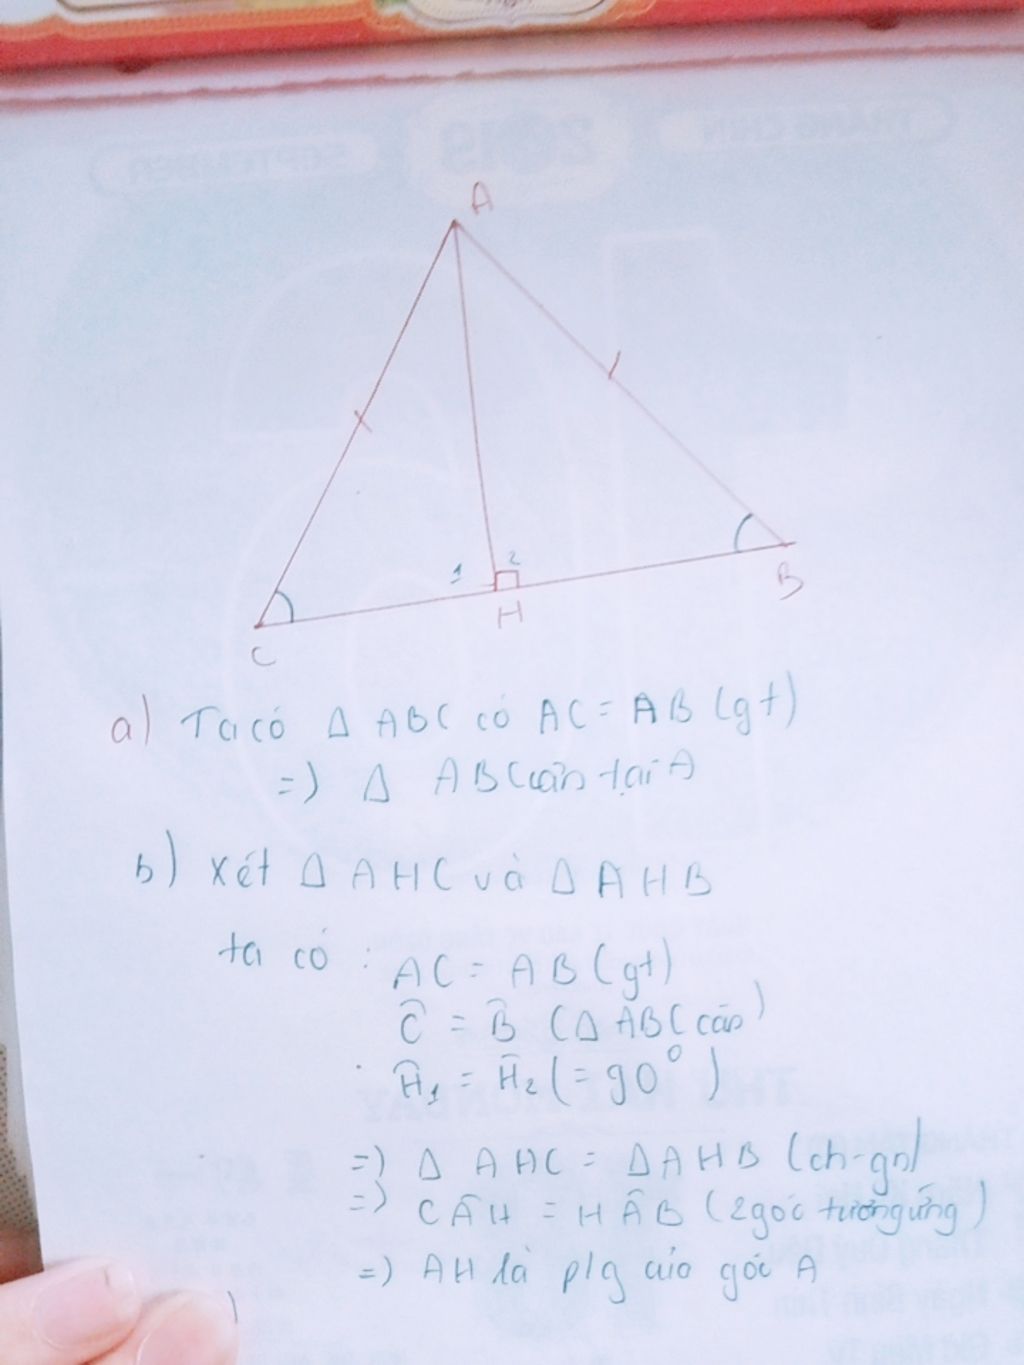 A
1
2
H
B
C
a) Ta có Δ ABC có AC = AB (gt)
=) Δ ABC cân tại A
b) Xét Δ AHC và Δ AHB
ta có : AC = AB (gt)
Ĉ = B̂ (Δ ABC cân)
Ĥ₁ = Ĥ₂ (= 90°)
=) Δ AHC = Δ AHB (ch-gn)
=) CÂH = HÂB (2 góc tương ứng)
=) AH là p/g của góc A